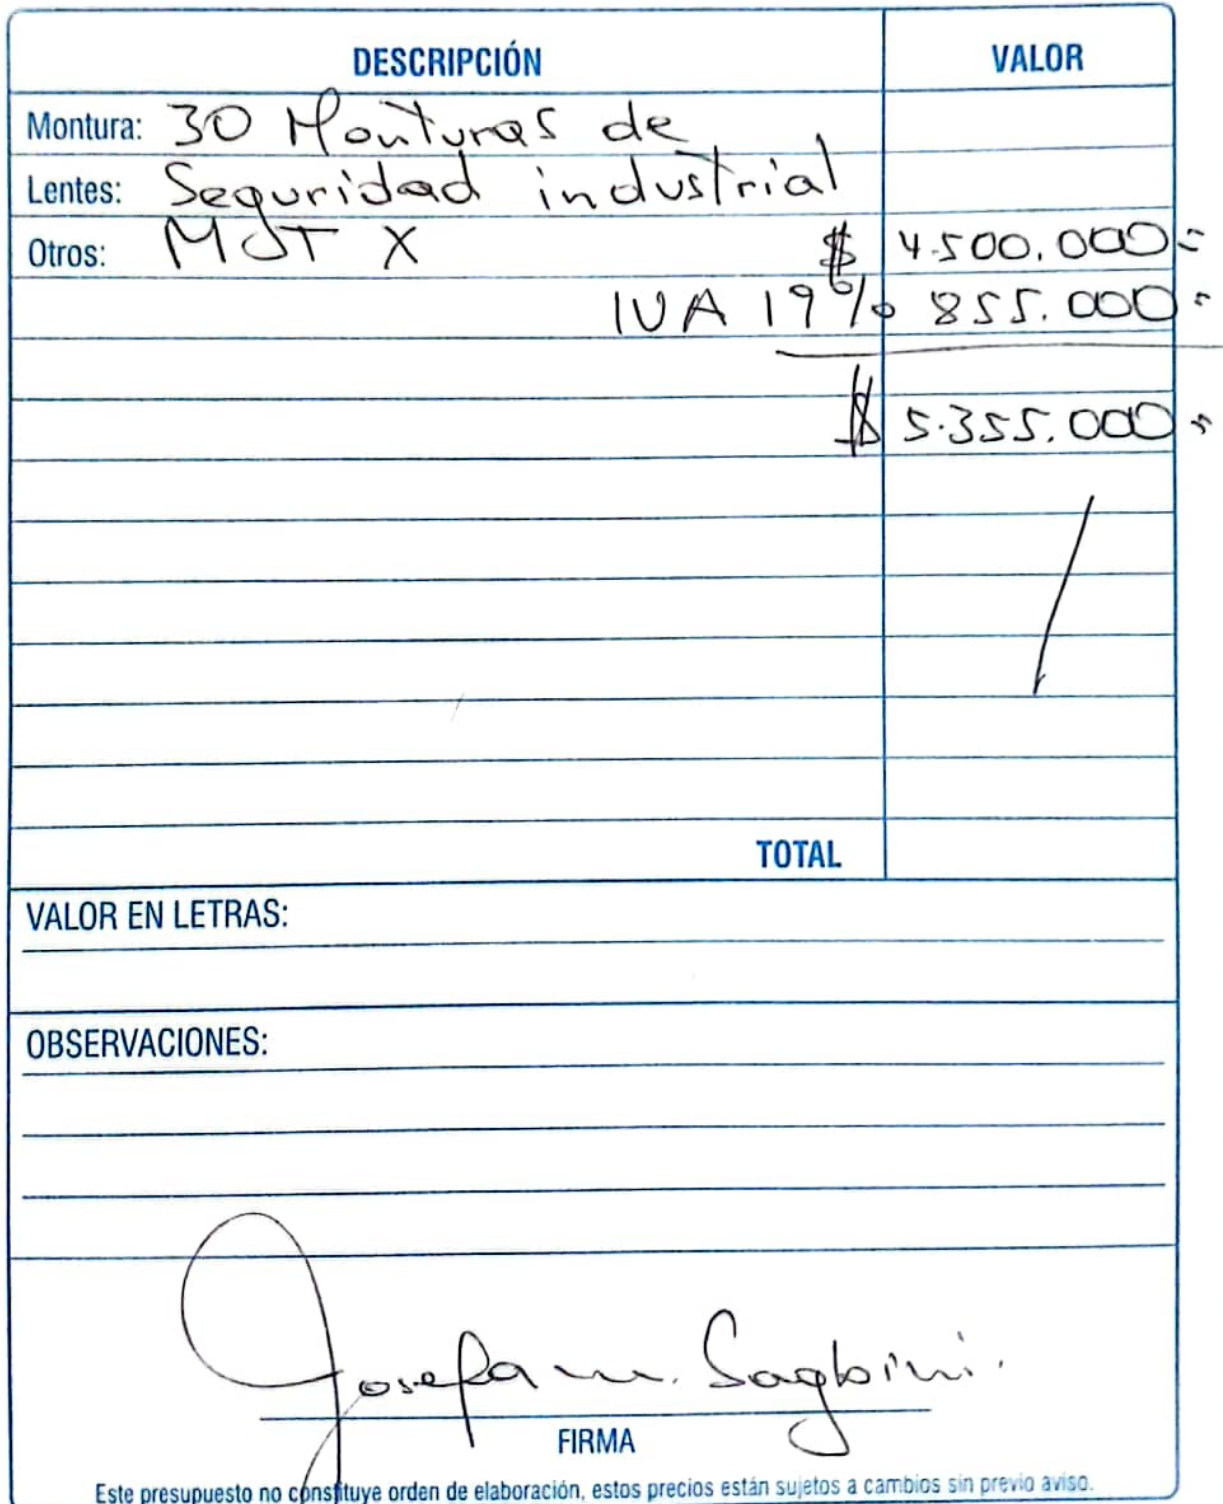 DESCRIPCIÓN VALOR
Montura: 30 Monturas de
Lentes: Seguridad industrial
Otros: MJT X $ 4.500.000=
IVA 19% 855.000=
$ 5.355.000=
TOTAL
VALOR EN LETRAS:
OBSERVACIONES:
Josefa m. Sagbini.
FIRMA
Este presupuesto no constituye orden de elaboración, estos precios están sujetos a cambios sin previo aviso.